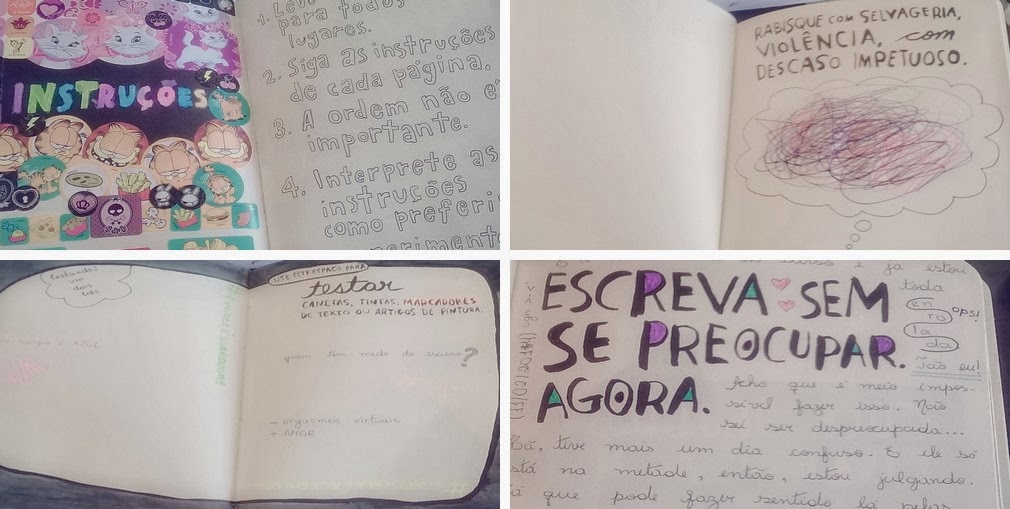 INSTRUÇÕES
1. Leve
para todos
lugares.
2. Siga as instruções
de cada página.
3. A ordem não é
importante.
4. Interprete as
instruções
como preferi
perimente
RABISQUE com SELVAGERIA,
VIOLÊNCIA, com
DESCASO IMPETUOSO.
testando!
um
dois
três
sangue é AZUL
USE ESTE ESPAÇO PARA
testar
CANETAS, TINTAS, MARCADORES
DE TEXTO OU ARTIGOS DE PINTURA.
quem tem medo do escuro?
- orgasmos virtuais
+ AMOR
e já estou
toda
en
ro
la
da
OPS!
Tão eu!
ESCREVA SEM
SE PREOCUPAR.
AGORA.
Acho que é meio impos-
sível fazer isso. Não
sei ser despreocupada...
tive mais um dia confuso. E ele só
está na metade, então, estou julgando.
já que pode fazer sentido lá pelas